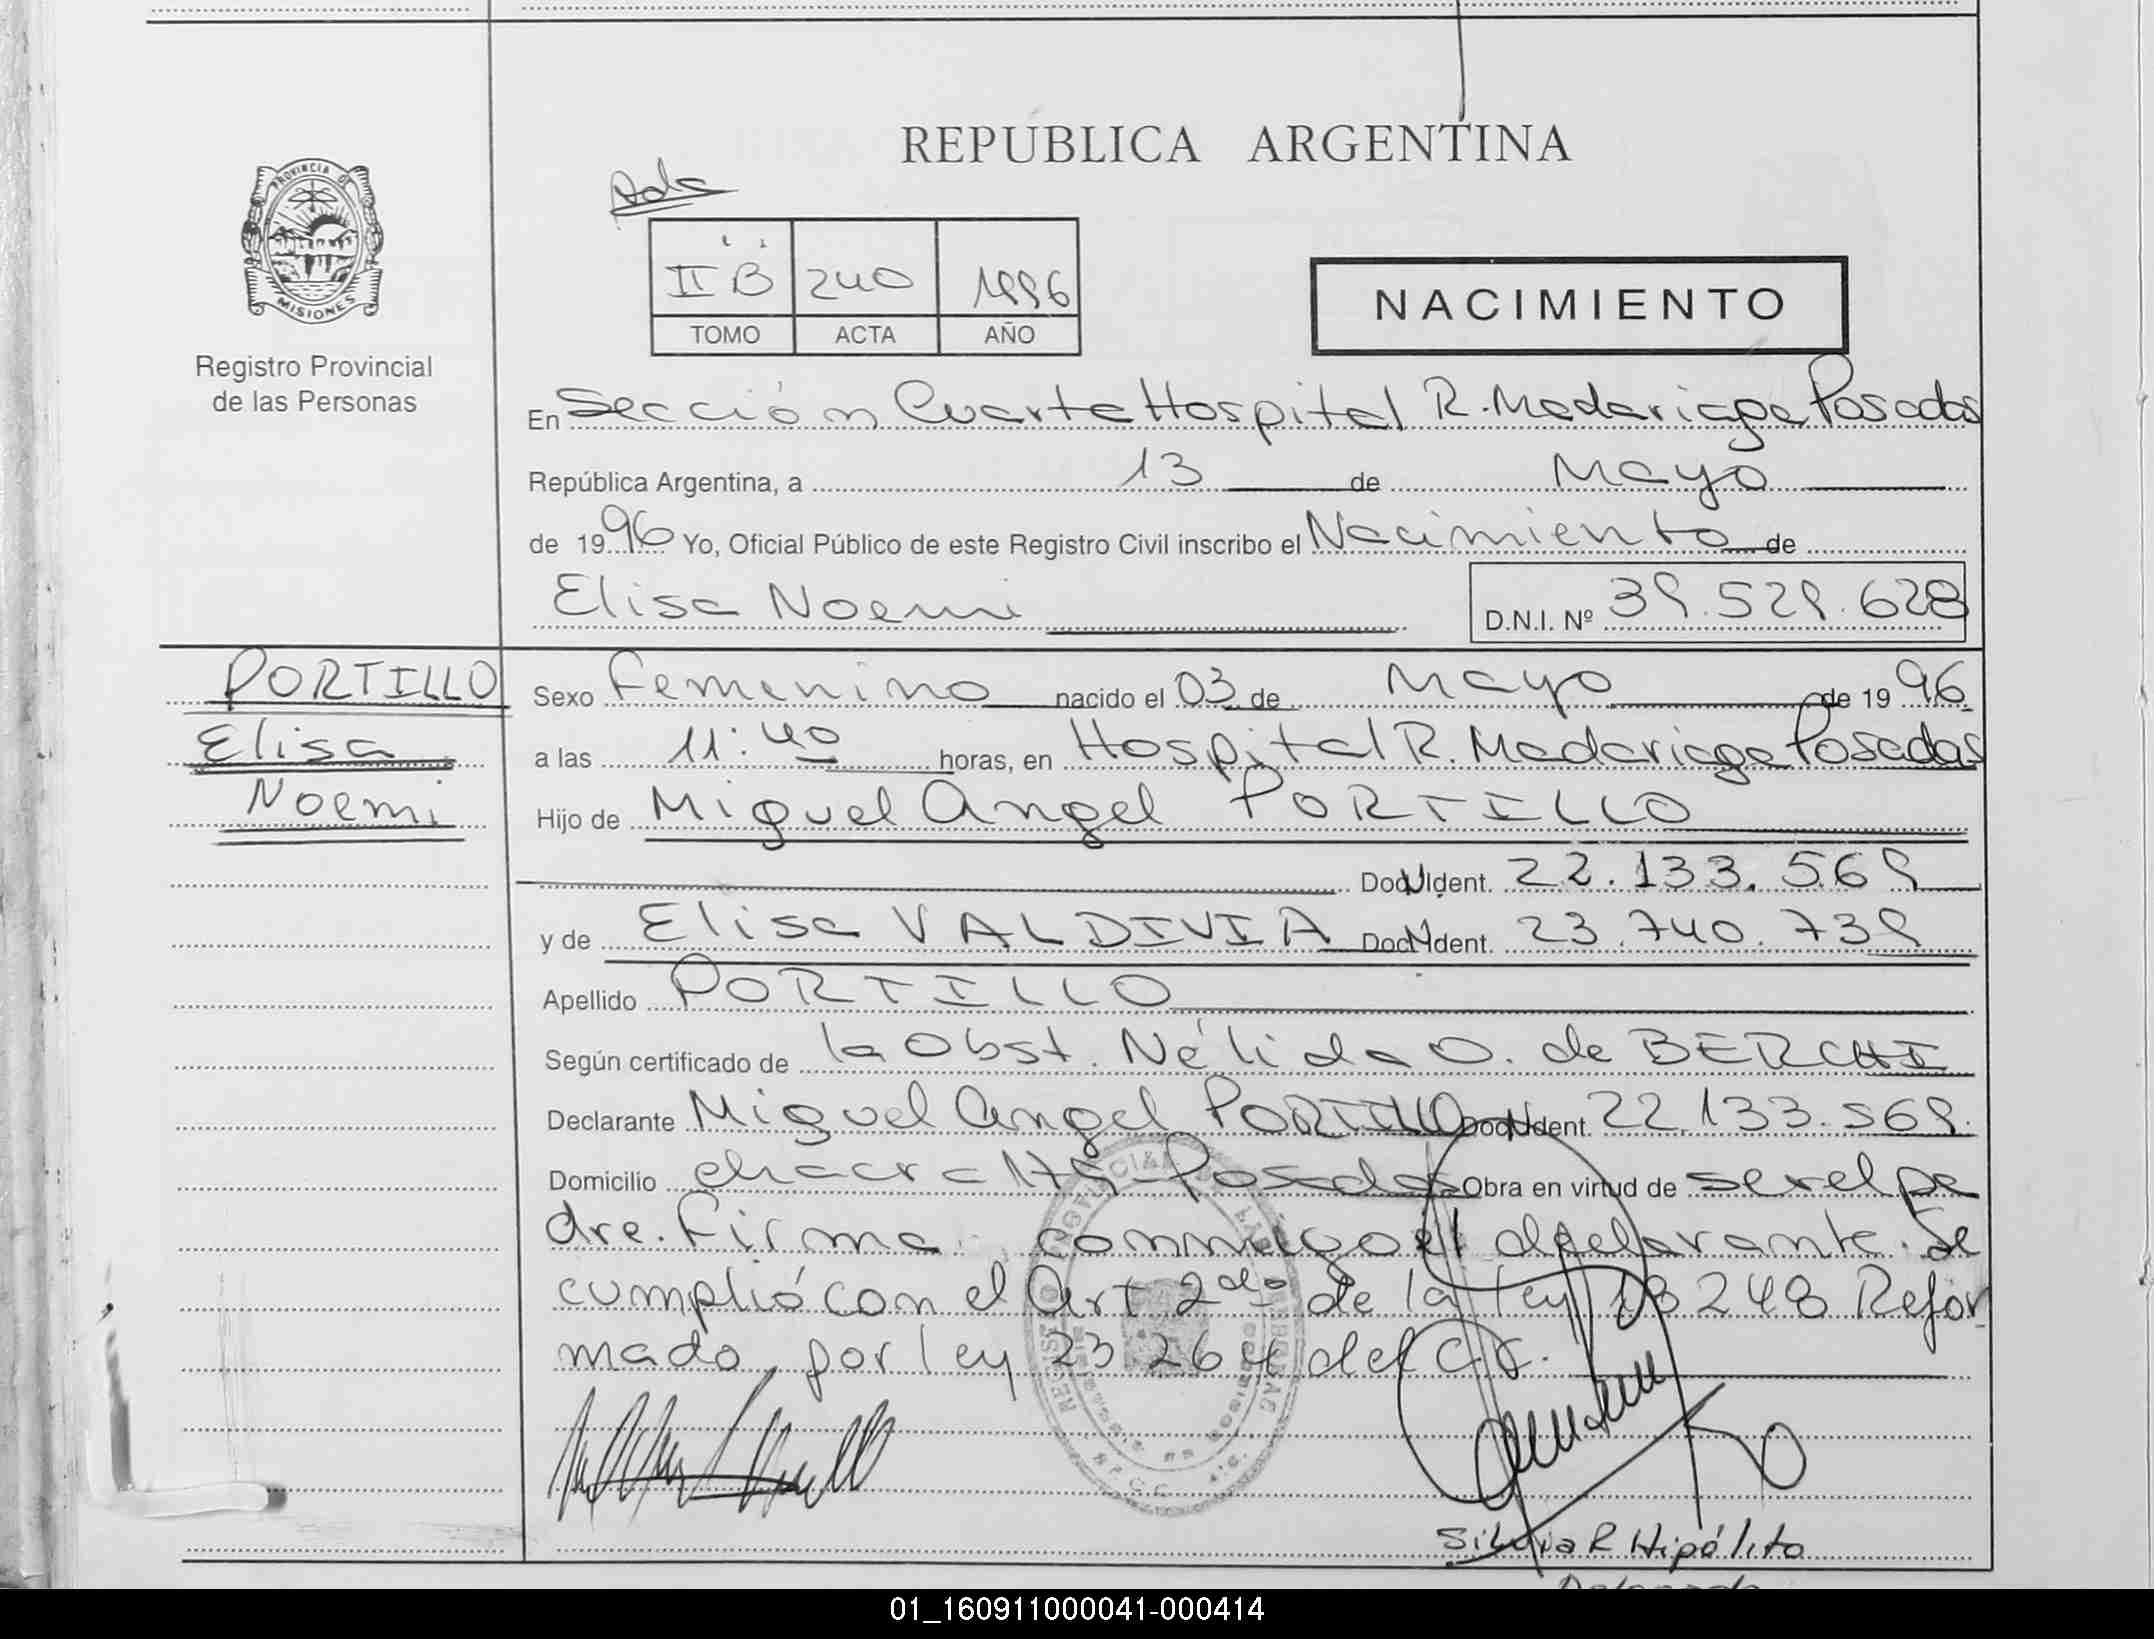 REPUBLICA ARGENTINA
PROVINCIA DE
MISIONES
Registro Provincial
de las Personas
II B 240 1996
TOMO ACTA AÑO
NACIMIENTO
En Sección Cuarta Hospital R. Madariaga Posadas
República Argentina, a 13 de Mayo
de 1996 Yo, Oficial Público de este Registro Civil inscribo el Nacimiento de
Elisa Noemi D.N.I. Nº 39.529.628
PORTILLO
Elisa
Noemi
Sexo Femenino nacido el 03 de Mayo de 1996
a las 11:40 horas, en Hospital R. Madariaga Posadas
Hijo de Miguel Angel PORTILLO
Doc. Ident. 22.133.569
y de Elisa VALDIVIA Doc. Ident. 23.740.739
Apellido PORTILLO
Según certificado de la Obst. Nélida O. de BERCHI
Declarante Miguel Angel PORTILLO Doc. Ident. 22.133.569.
Domicilio chacra Posadas Obra en virtud de ser el pa
dre. Firma conmigo el declarante. Se
cumplió con el Art 2do de la ley 18248 Refor
mado por ley 23264 del C.C.
Silvia R Hipólito
01_160911000041-000414